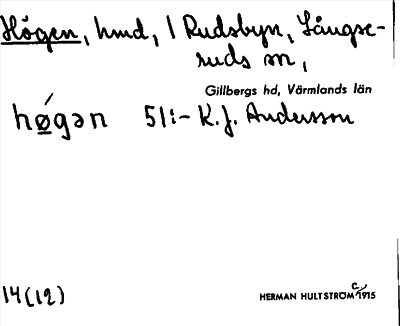 Högen, hmd, 1 Rudsbyn, Långse-
ruds sn,
Gillbergs hd, Värmlands län
hǿgən 51:- K.J. Andersson
14(12)
HERMAN HULTSTRÖM c/1915